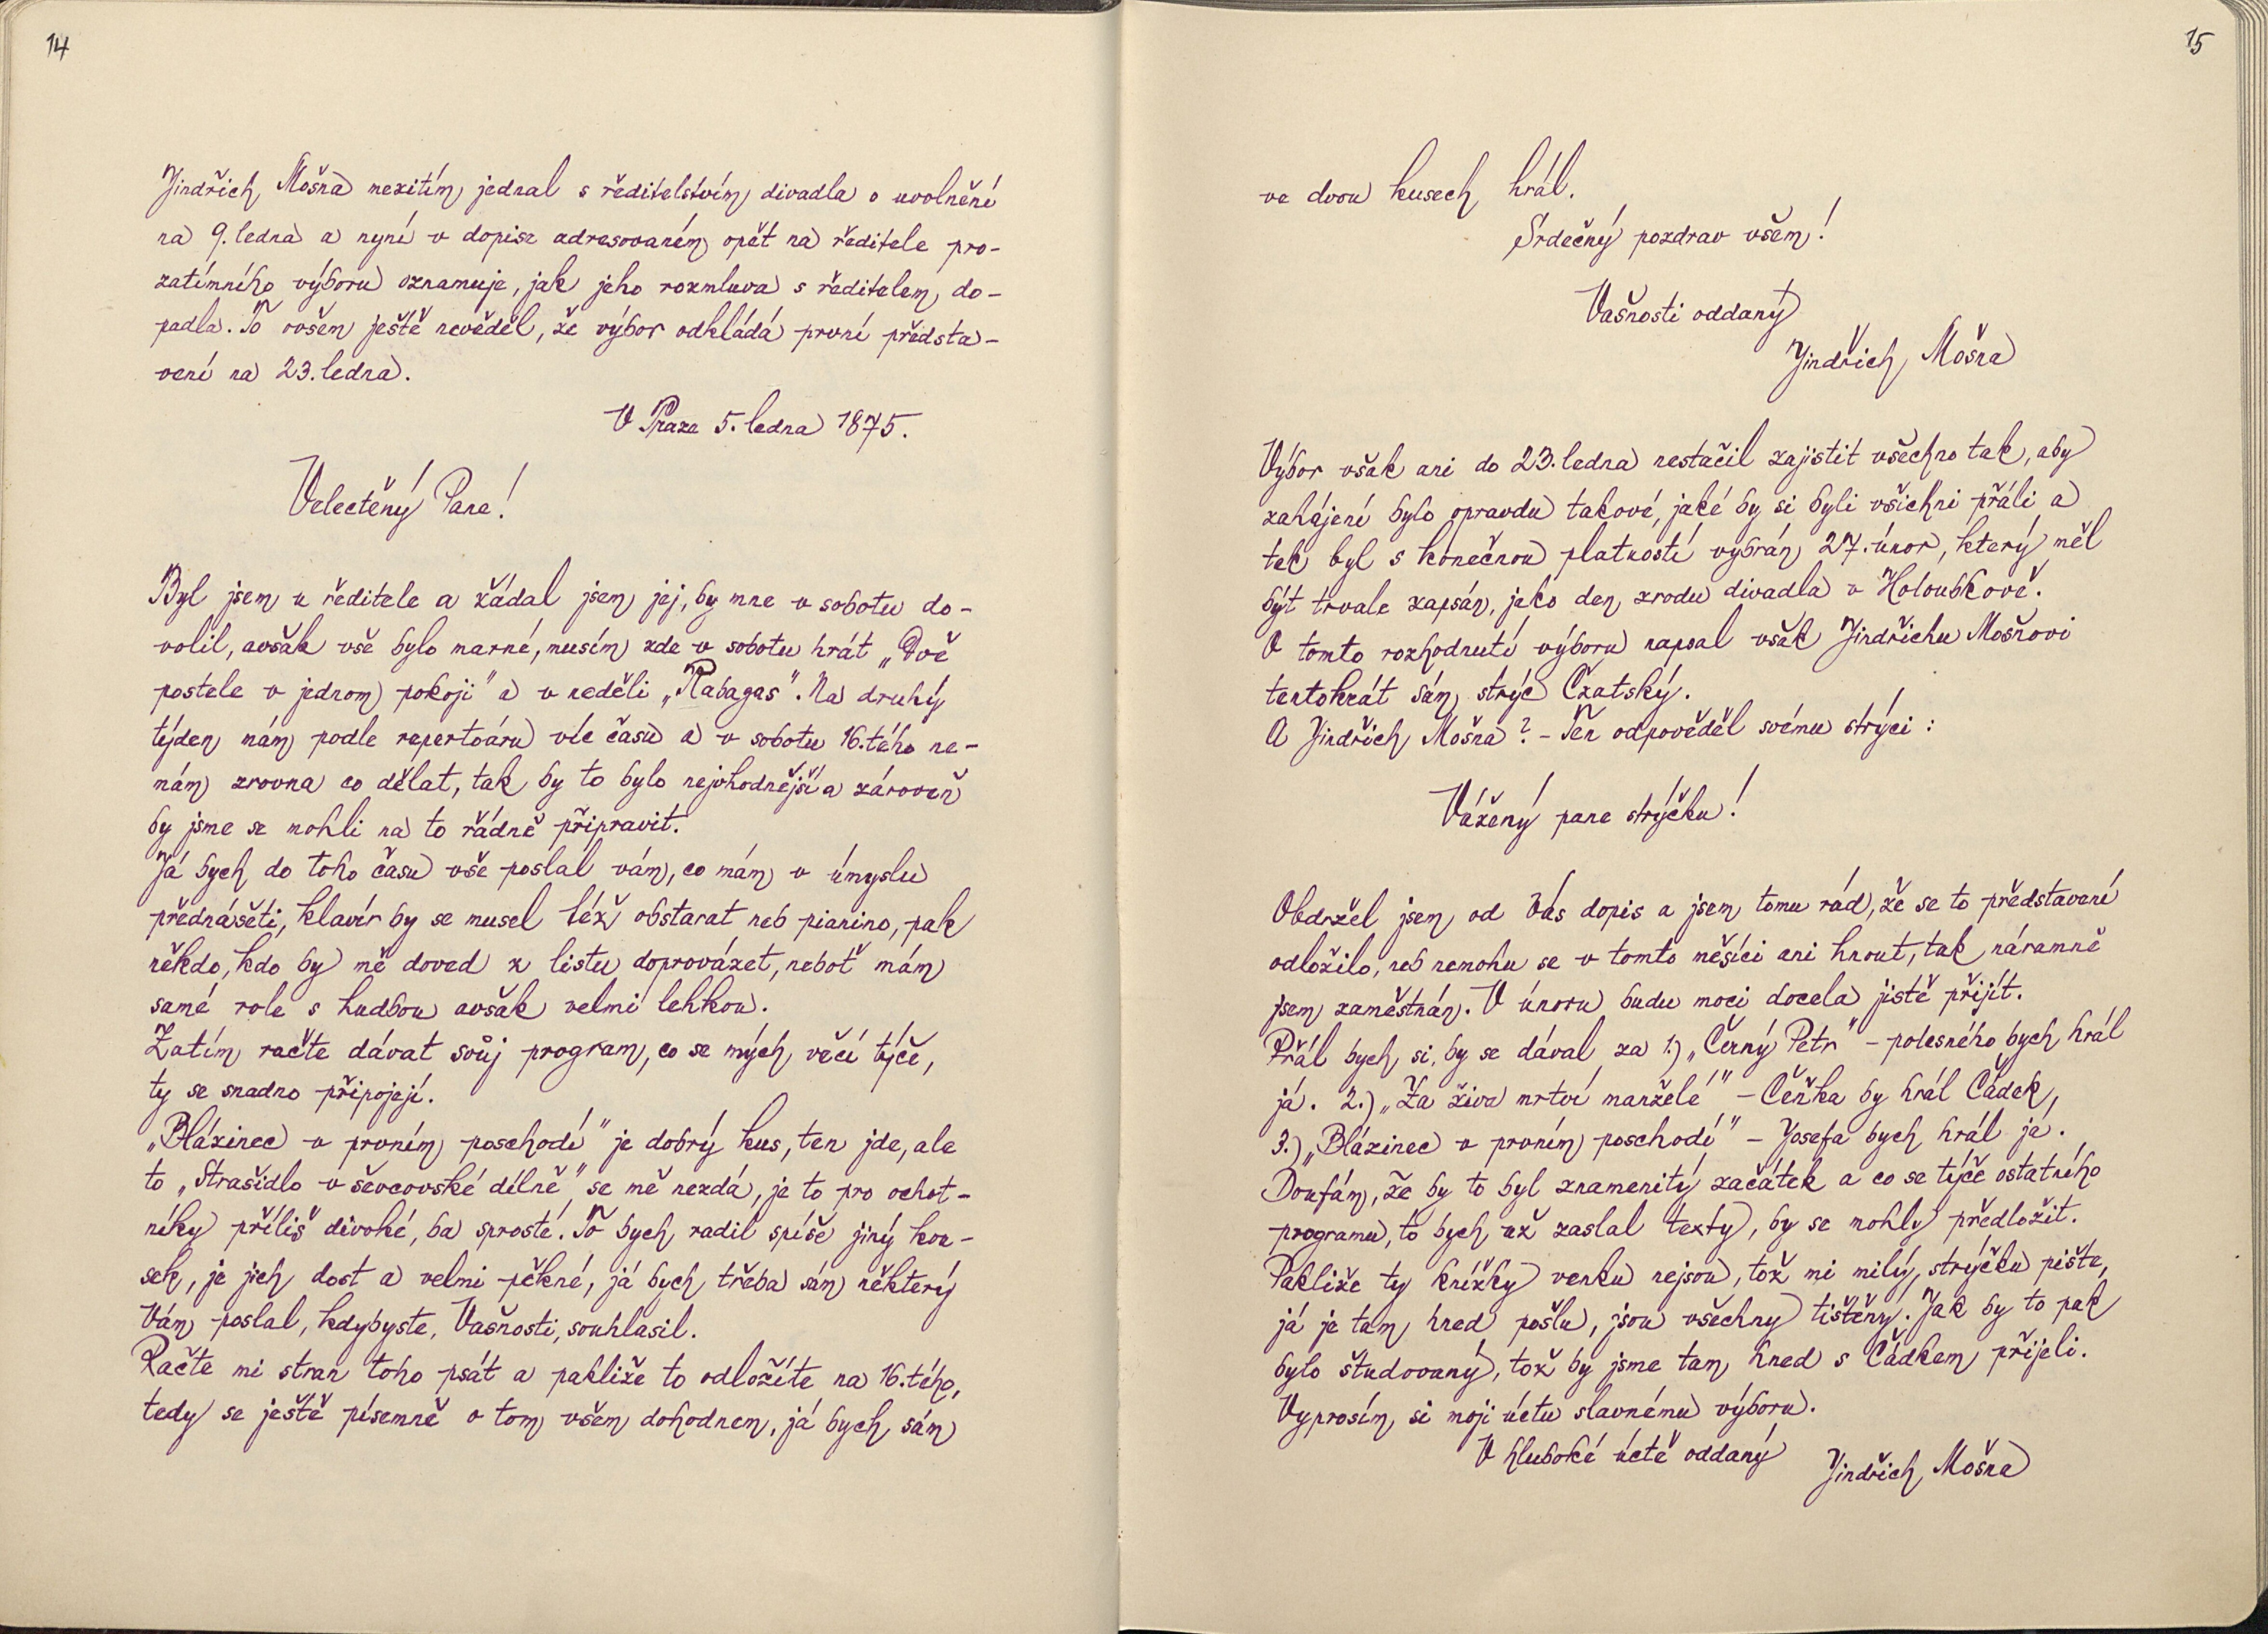 14
Jindřich Mošna mezitím jednal s ředitelstvím divadla o uvolnění
na 9. ledna a nyní v dopise adresovaném opět na ředitele pro-
zatímního výboru oznamuje, jak jeho rozmluva s ředitelem do-
padla. To ovšem ještě nevěděl, že výbor odkládá první předsta-
vení na 23. ledna.
V Praze 5. ledna 1875.
Velectěný Pane!
Byl jsem u ředitele a žádal jsem jej, by mne v sobotu do-
volil, avšak vše bylo marné, musím zde v sobotu hrát „Dvě
postele v jednom pokoji" a v neděli „Rabagas". Na druhý
týden mám podle repertoáru víc času a v sobotu 16. tého ne-
mám zrovna co dělat, tak by to bylo nejvhodnější a zároveň
by jsme se mohli na to řádně připravit.
Já bych do toho času vše poslal vám, co mám v úmyslu
přednášeti, klavír by se musel též obstarat neb pianino, pak
někdo, kdo by mě doved z listu doprovázet, neboť mám
samé role s hudbou avšak velmi lehkou.
Zatím račte dávat svůj program, co se mých věcí týče,
ty se snadno připojejí.
„Blázinec v prvním poschodí" je dobrý kus, ten jde, ale
to „Strašidlo v ševcovské dílně" se mě nezdá, je to pro ochot-
níky příliš divoké, ba sprosté. To bych radil spíše jiný kou-
sek, je jich dost a velmi pěkné, já bych třeba sám některý
Vám poslal, kdybyste, Vašnosti, souhlasil.
Račte mi stran toho psát a pakliže to odložíte na 16. tého,
tedy se ještě písemně o tom všem dohodnem, já bych sám
15
ve dvou kusech hrál.
Srdečný pozdrav všem!
Vašnosti oddaný
Jindřich Mošna
Výbor však ani do 23. ledna nestačil zajistit všechno tak, aby
zahájení bylo opravdu takové, jaké by si byli všichni přáli a
tak byl s konečnou platností vybrán 27. únor, který měl
být trvale zapsán, jako den zrodu divadla v Holoubkově.
O tomto rozhodnutí výboru napsal však Jindřichu Mošnovi
tentokrát sám strýc Čzatský.
A Jindřich Mošna? - Ten odpověděl svému strýci:
Vážený pane strýčku!
Obdržel jsem od Vás dopis a jsem tomu rád, že se to představení
odložilo, neb nemohu se v tomto měsíci ani hnout, tak náramně
jsem zaměstnán. V únoru budu moci docela jistě přijít.
Přál bych si, by se dával za 1.) „Černý Petr" - polesného bych hrál
já. 2.) „Za živa mrtví manželé" - Čeňka by hrál Čádek,
3.) „Blázinec v prvním poschodí" - Josefa bych hrál já.
Doufám, že by to byl znamenitý začátek a co se týče ostatního
programu, to bych až zaslal texty, by se mohly předložit.
Pakliže ty knížky venku nejsou, tož mi milý, strýčku pište,
já je tam hned pošlu, jsou všechny tištěny. Jak by to pak
bylo študovaný, tož by jsme tam hned s Čádkem přijeli.
Vyprosím si moji úctu slavnému výboru.
V hluboké úctě oddaný
Jindřich Mošna